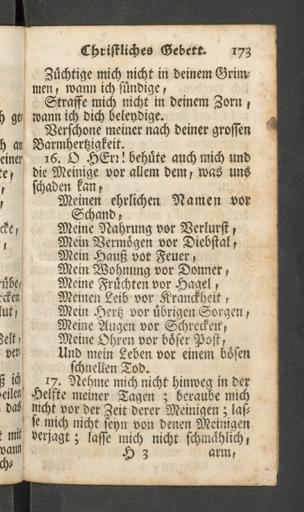 Christliches Gebett. 173
Züchtige mich nicht in deinem Grim-
men, wann ich sündige,
Straffe mich nicht in deinem Zorn,
wann ich dich beleydige.
Verschone meiner nach deiner grossen
Barmhertzigkeit.
16. O HErr! behüte auch mich und
die Meinige vor allem dem, was uns
schaden kan,
Meinen ehrlichen Namen vor
Schand,
Meine Nahrung vor Verlurst,
Mein Vermögen vor Diebstal,
Mein Hauß vor Feuer,
Mein Wohnung vor Donner,
Meine Früchten vor Hagel,
Meinen Leib vor Kranckheit,
Mein Hertz vor übrigen Sorgen,
Meine Augen vor Schrecken,
Meine Ohren vor böser Post,
Und mein Leben vor einem bösen
schnellen Tod.
17. Nehme mich nicht hinweg in der
Helfte meiner Tagen; beraube mich
nicht vor der Zeit derer Meinigen; las-
se mich nicht seyn von denen Meinigen
verjagt; lasse mich nicht schmählich,
H 3 arm,